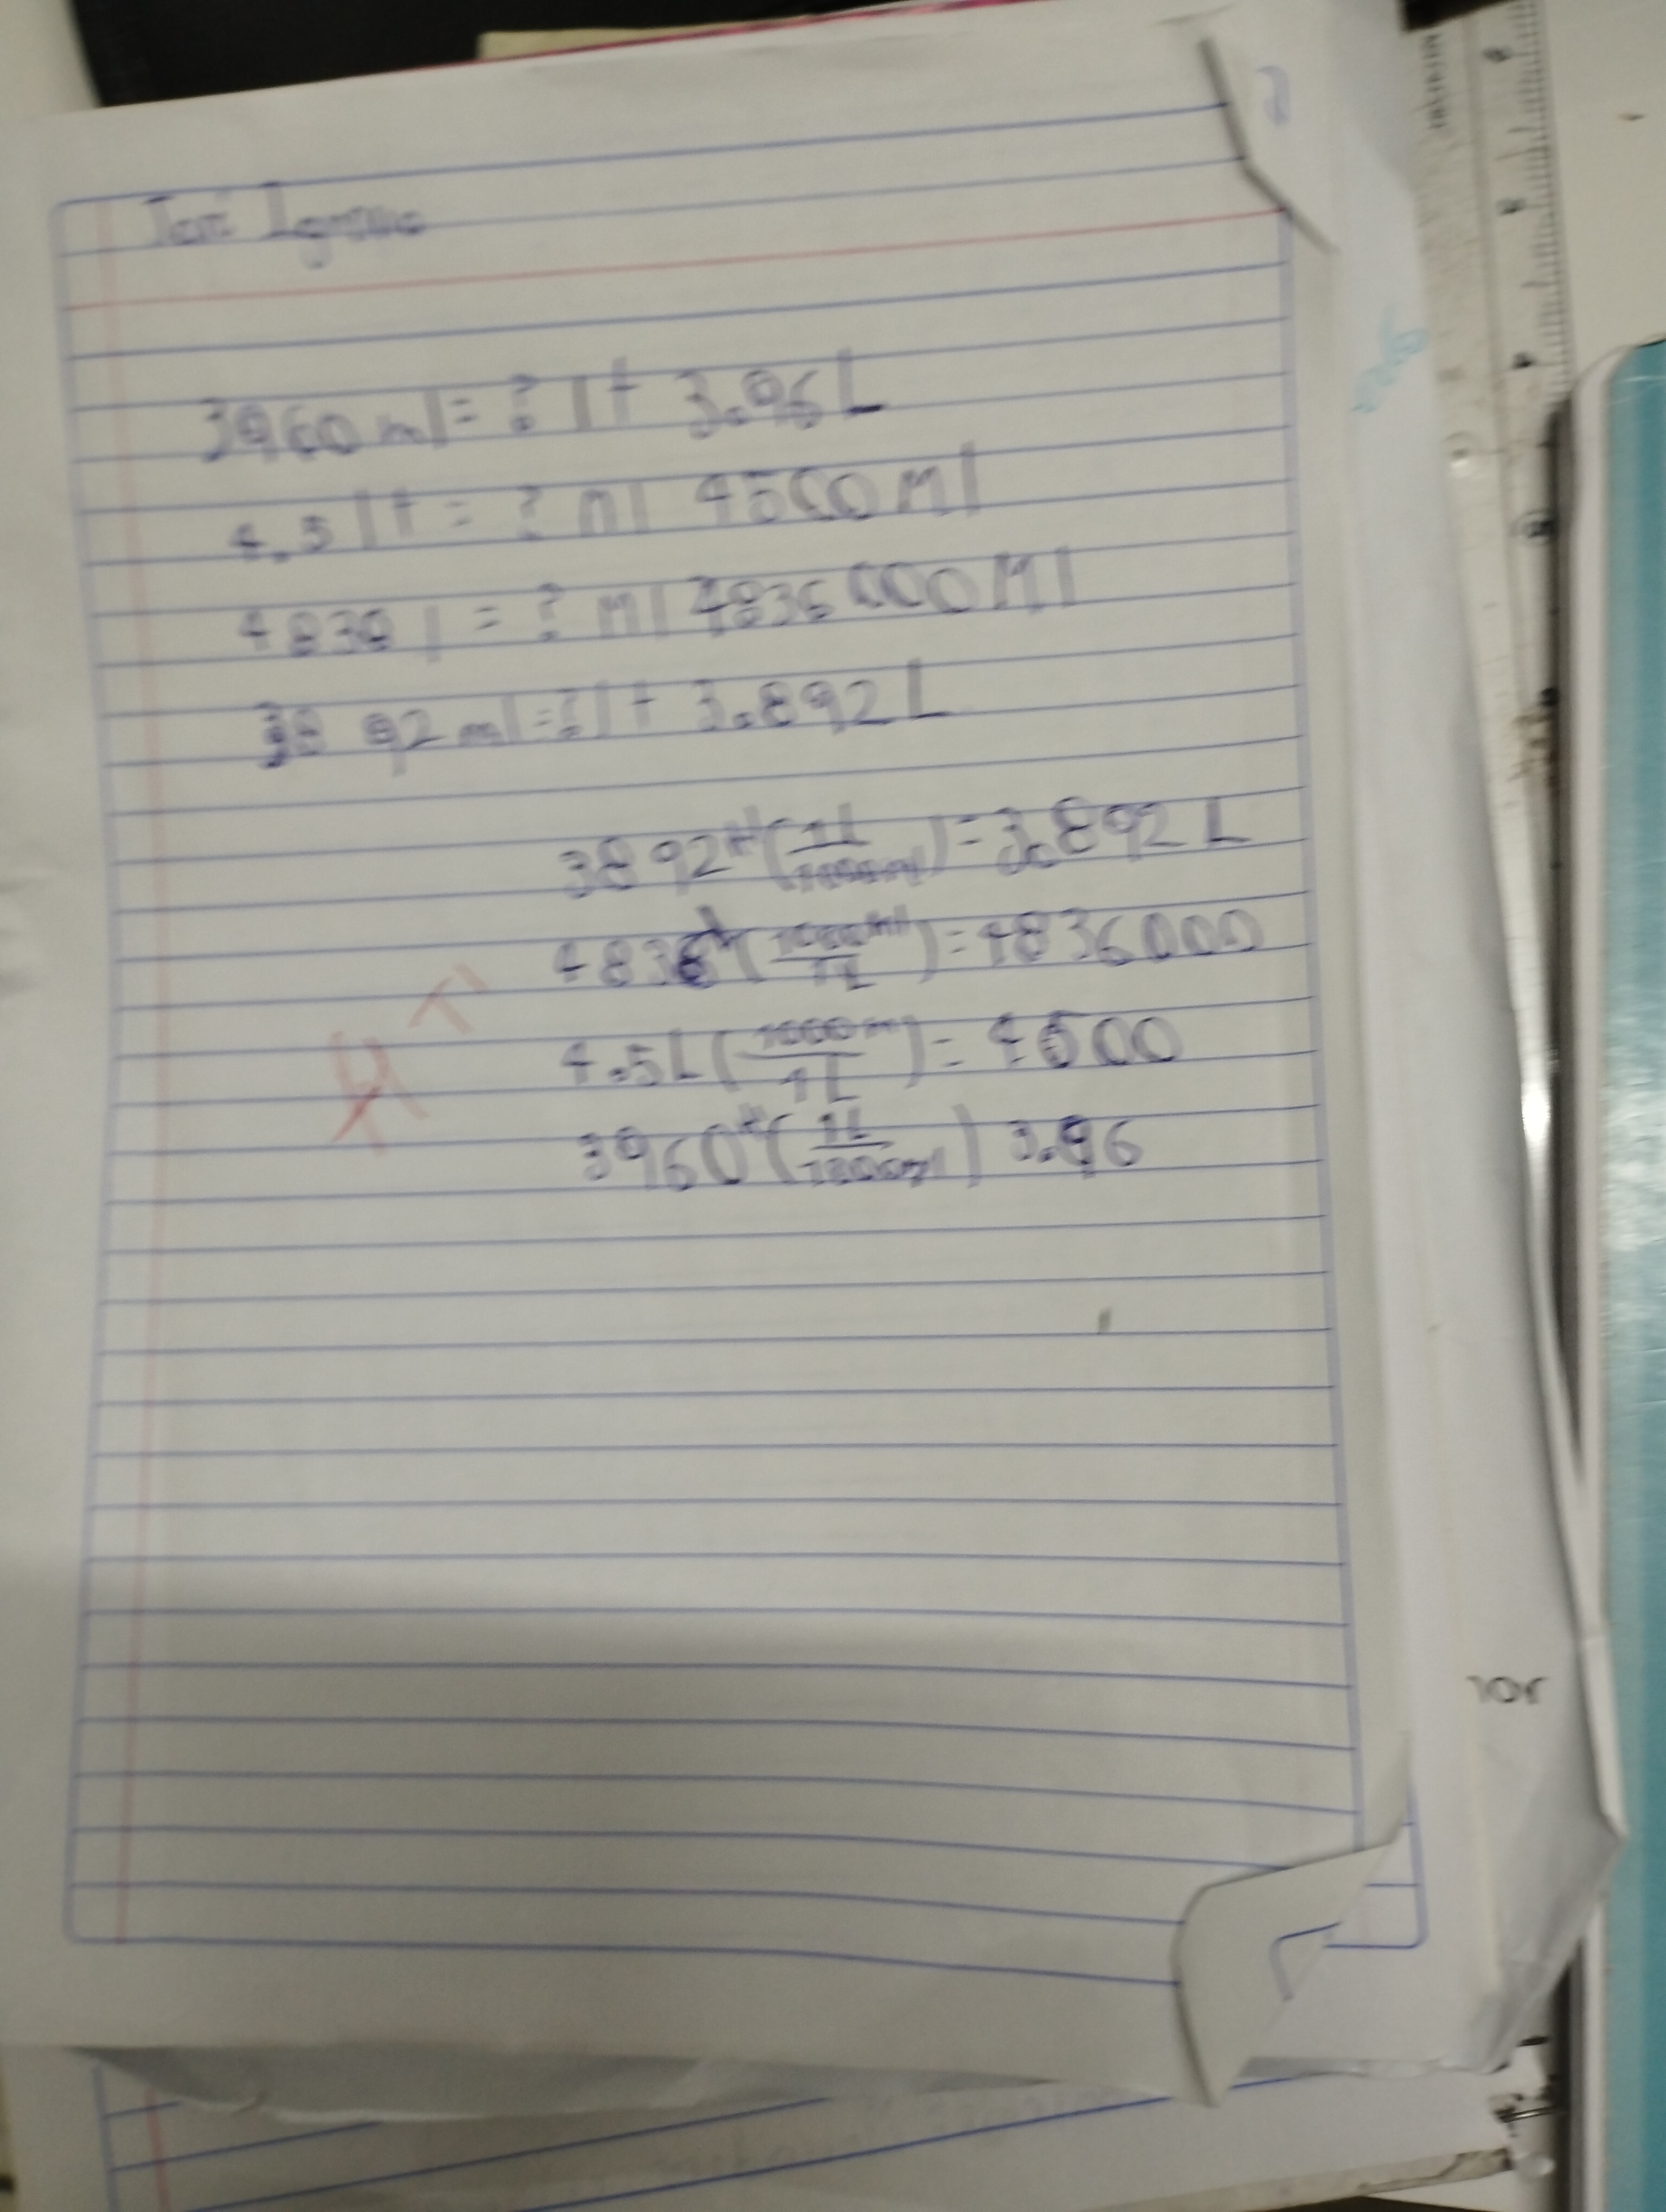 3960 ml = ? lt 3.96 L
4.5 lt = ? ml 4500 Ml
4836 l = ? ml 4836000 Ml
3892 ml = ? lt 3.892 L
3892 (1L/1000ml) = 3.892 L
4836 (1000ml/1L) = 4836000
4.5L (1000ml/1L) = 4500
3960 (1L/1000ml) 3.96